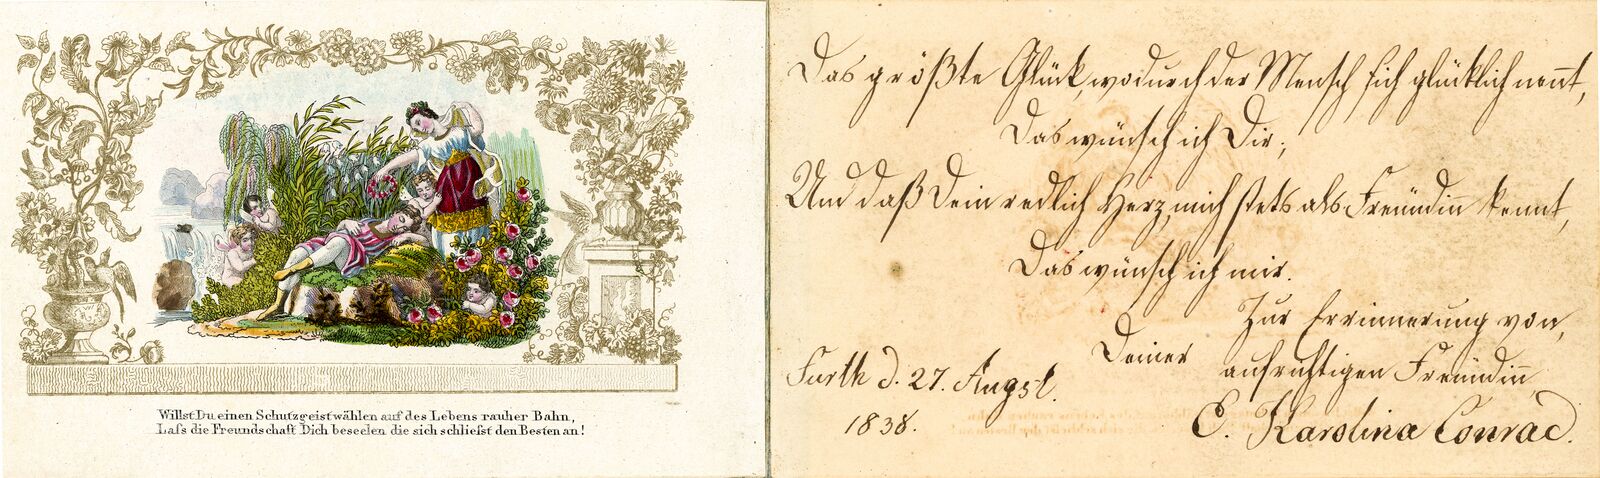 Willst Du einen Schutzgeist wählen auf des Lebens rauher Bahn,
Laſs die Freundschaft Dich beseelen die sich schlieſst den Besten an!
Das größte Glück, wodurch der Mensch sich glücklich nennt,
Das wünsch ich Dir;
Und daß Dein redlich Herz, mich stets als Freundin kennt,
Das wünsch ich mir.
Zur Errinnerung von,
Deiner aufrichtigen Freundin
Furth d. 27. Augst.
1838.
E. Karolina Conrad.